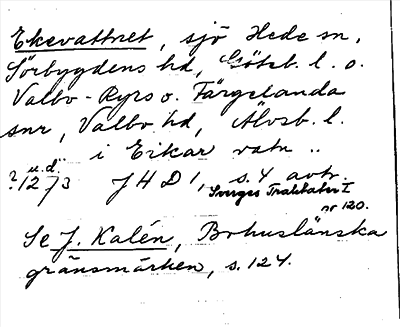 Ekevattnet, sjö Hede sn,
Sörbygdens hd, Göteb. l. o.
Valbo-Ryrs o. Färgelanda
snr, Valbo hd, Älvsb. l.
u. d. i Eikar vatn ..
? 1273 J H D 1, s. 4 avtr.
Sveriges Traktater I
nr 120.
Se J. Kalén, Bohuslänska
gränsmärken, s. 124.